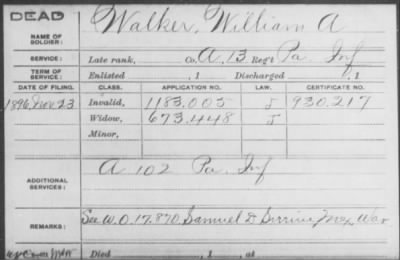 DEAD
Walker, William A
NAME OF SOLDIER:
SERVICE: Late rank, Co. A, 13 Reg't Pa. Inf
TERM OF SERVICE: Enlisted , 1 Discharged , 1
DATE OF FILING. CLASS. APPLICATION NO. LAW. CERTIFICATE NO.
1896, Nov 23 Invalid, 1183.005 J 930.217
Widow, 673.448 J
Minor,
ADDITIONAL SERVICES: A 102 Pa. Inf
REMARKS: See W.O. 17.870, Samuel D. Mex War
Died , 1 , at